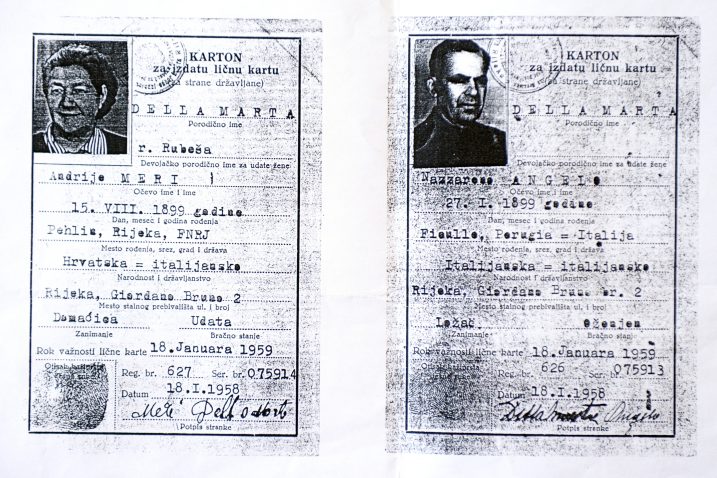 KARTON
za izdatu ličnu kartu
(za strane državljane)
DELLA MARTA
Porodično ime
r. Rubeša
Devojačko porodično ime za udate žene
Andrije MERI
Očevo ime i ime
15. VIII. 1899 godine
Dan, mesec i godina rođenja
Pehlin, Rijeka, FNRJ
Mesto rođenja, srez, grad i država
Hrvatska = italijansko
Narodnost i državljanstvo
Rijeka, Giordano Bruno 2
Mesto stalnog prebivališta ul. i broj
Domaćica Udata
Zanimanje Bračno stanje
Rok važnosti lične karte 18. Januara 1959
Reg. br. 627 Ser. br. 075914
Datum 18.I.1958
Potpis stranke
KARTON
za izdatu ličnu kartu
(za strane državljane)
DELLA MARTA
Porodično ime
Devojačko porodično ime za udate žene
Nazzareno ANGELO
Očevo ime i ime
27. I. 1899 godine
Dan, mesec i godina rođenja
Perugia = Italija
Mesto rođenja, srez, grad i država
Italijanska = italijansko
Narodnost i državljanstvo
Rijeka, Giordano Bruno br. 2
Mesto stalnog prebivališta ul. i broj
Ložač Oženjen
Zanimanje Bračno stanje
Rok važnosti lične karte 18. Januara 1959
Reg. br. 626 Ser. br. 075913
Datum 18.I.1958
Potpis stranke